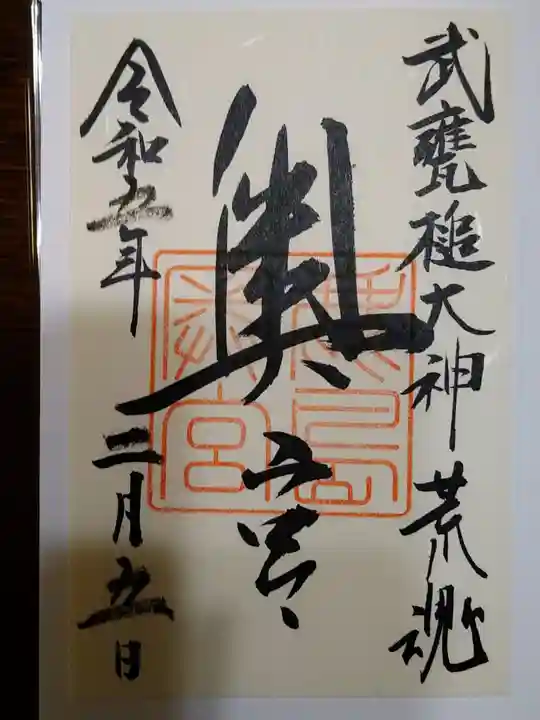 武甕槌大神荒魂
奥宮
鹿島奥宮
令和五年二月五日